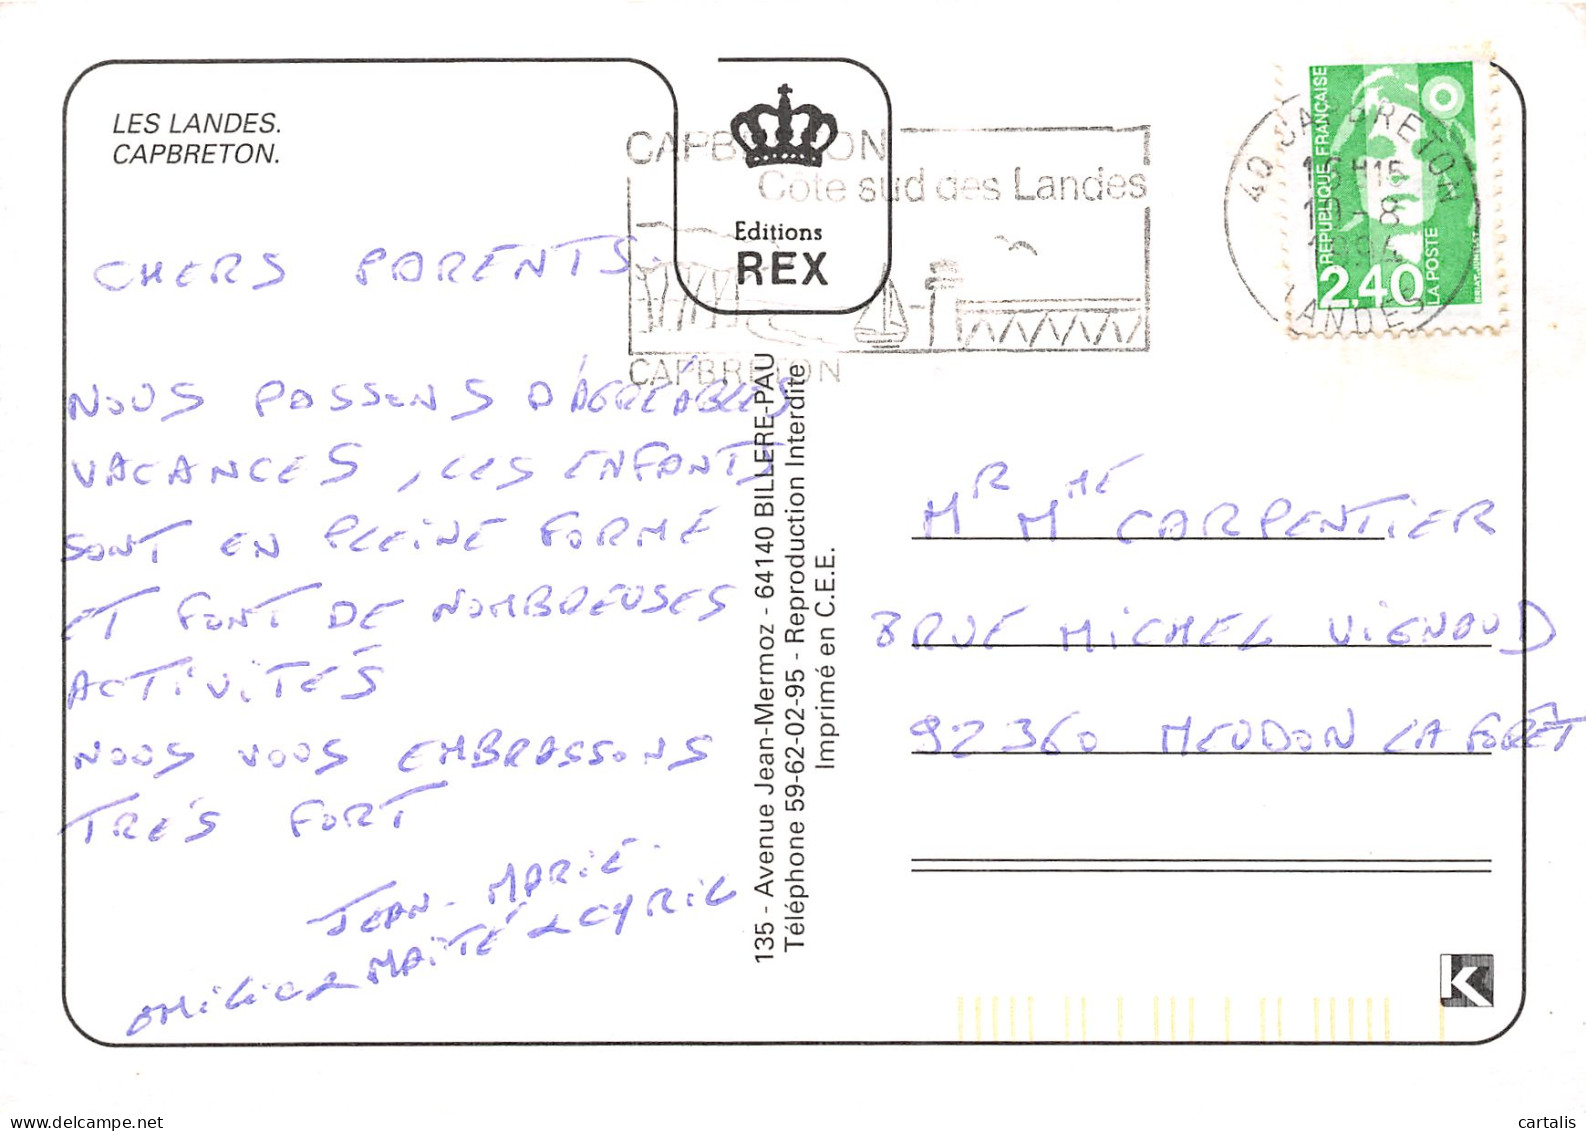 LES LANDES.
CAPBRETON.
CHERS PARENTS.
NOUS PASSONS D'AGRÉABLES
VACANCES, LES ENFANTS
SONT EN PLEINE FORME
ET FONT DE NOMBREUSES
ACTIVITÉS
NOUS VOUS EMBRASSONS
TRÈS FORT
JEAN-MARIE
MAÏTÉ & CYRIL
Editions
REX
135 - Avenue Jean-Mermoz - 64140 BILLERE-PAU
Téléphone 59-62-02-95 - Reproduction Interdite
Imprimé en C.E.E.
CAPBRETON
Côte sud des Landes
CAPBRETON
40 CAPBRETON
19-8
LANDES
RÉPUBLIQUE FRANÇAISE
2,40
LA POSTE
MR MME CARPENTIER
8 RUE MICHEL VIGNAUD
92360 MEUDON LA FORÊT
K
delcampe.net
cartalis